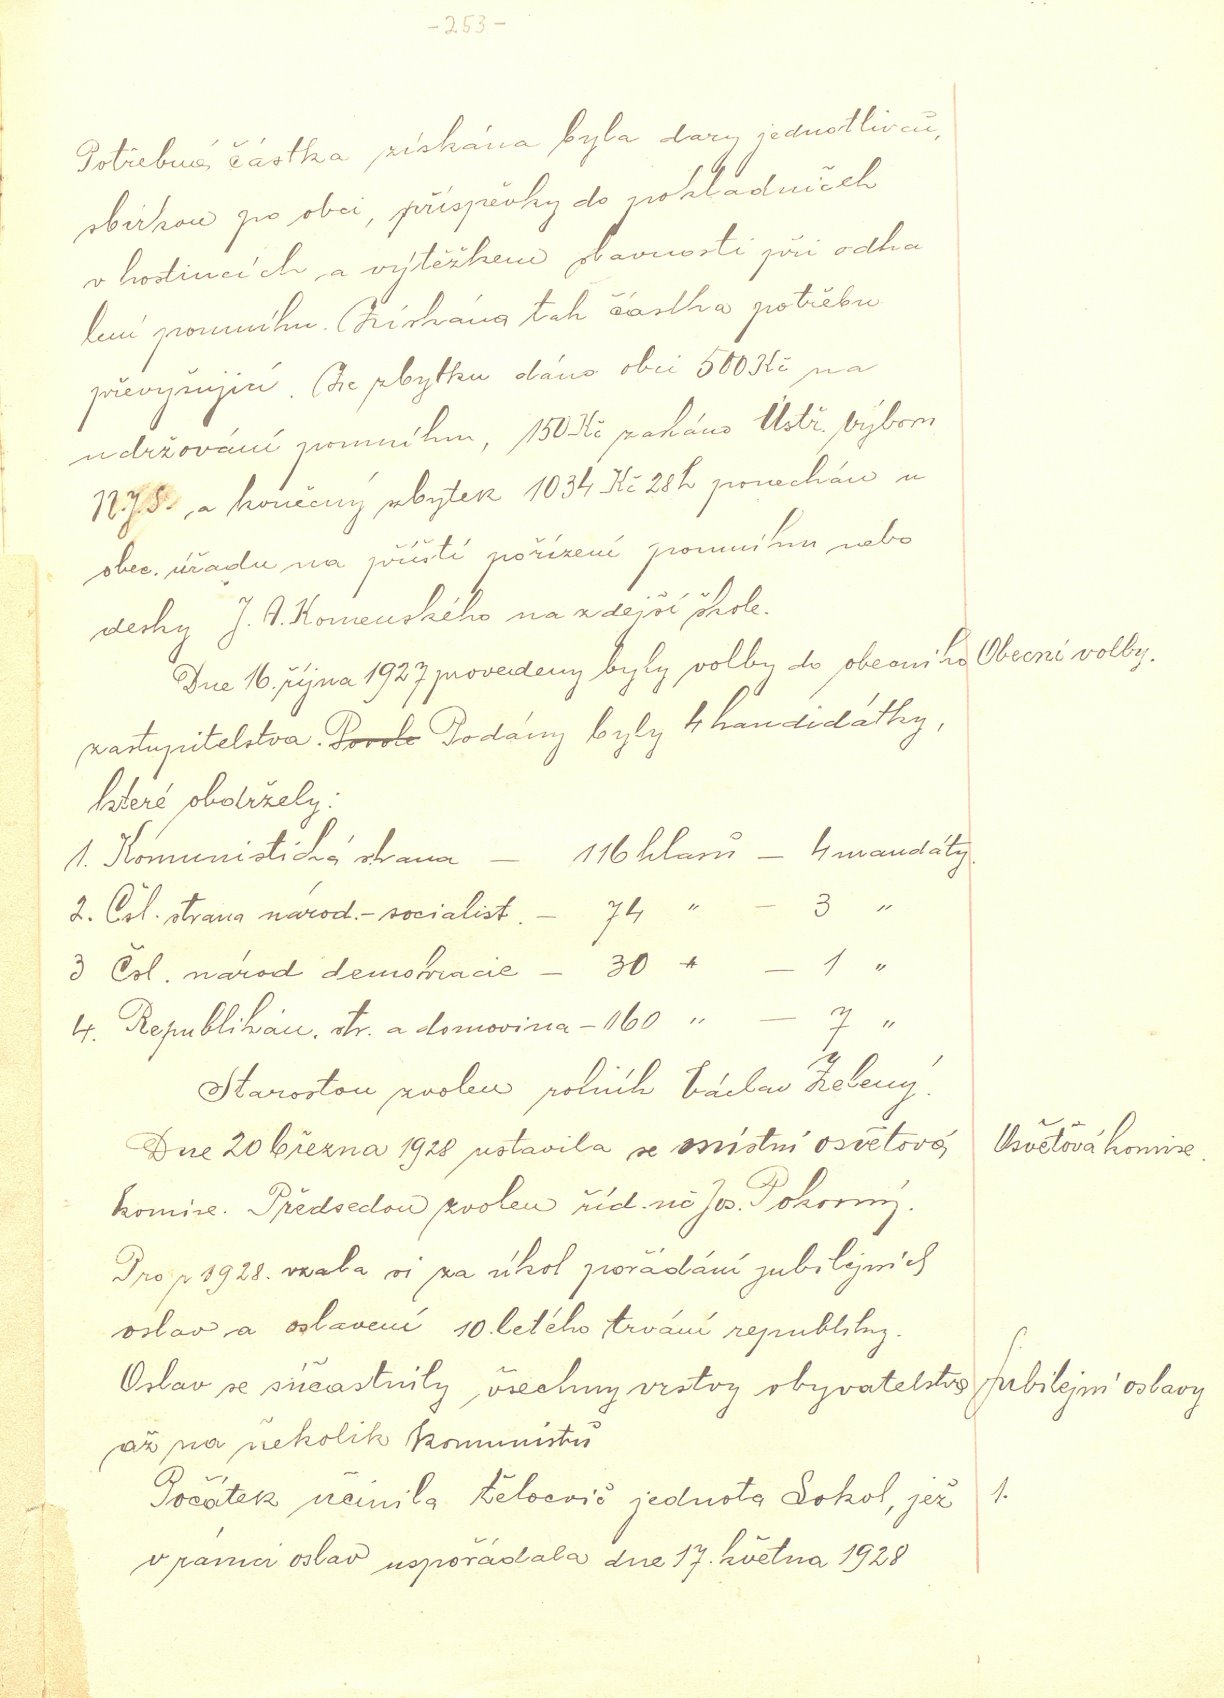 -253-
Potřebná částka získána byla dary jednotlivců,
sbírkou po obci, příspěvky do pokladniček
v hostincích a výtěžkem slavnosti při odha
lení pomníku. Získána tak částka potřebu
převyšující. Ze zbytku dáno obci 500 Kč na
udržování pomníku, 150 Kč zasláno Ústř. výboru
N.J.S. a konečný zbytek 1034 Kč 28 h ponechán u
obec. úřadu na příští pořízení pomníku nebo
desky J. A. Komenského na zdejší škole.
Dne 16. října 1927 provedeny byly volby do obecního
Obecní volby.
zastupitelstva. Podány byly 4 kandidátky,
které obdržely:
1. Komunistická strana — 116 hlasů — 4 mandáty.
2. Čsl. strana národ.-socialist. — 74 " — 3 "
3 Čsl. národ demokracie — 30 " — 1 "
4. Republikán. str. a domovina — 160 " — 7 "
Starostou zvolen rolník Václav Zelený.
Dne 20 března 1928 ustavila se místní osvětová
Osvětová komise.
komise. Předsedou zvolen říd. uč Jos. Pokorný.
Pro r 1928. vzala si za úkol pořádání jubilejních
oslav a oslavení 10. letého trvání republiky.
Oslav se súčastnily všechny vrstvy obyvatelstva
Jubilejní oslavy
až na několik komunistů
Počátek učinila tělocvič jednota Sokol, jež
1.
v rámci oslav uspořádala dne 17. května 1928